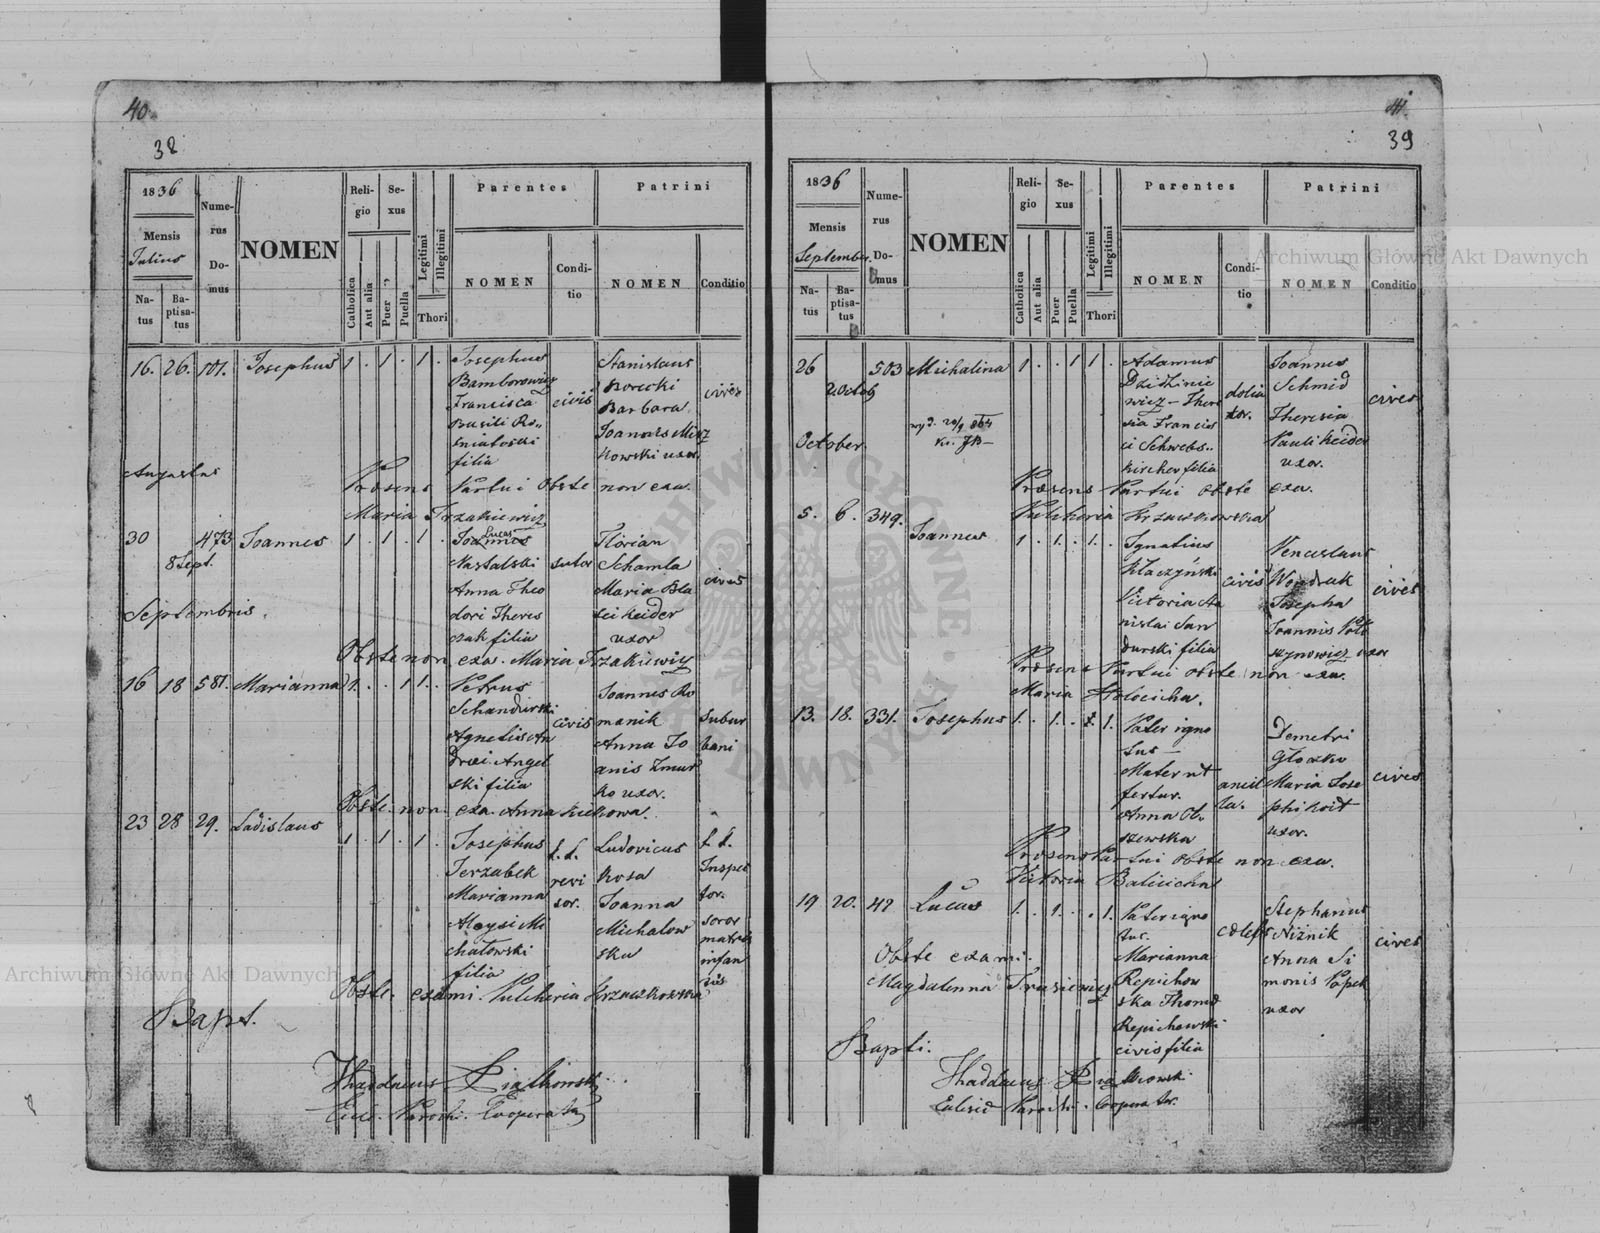 40.
32
1836
Mensis
Julius
Natus
Baptisatus
Numerus Domus
NOMEN
Religio
Catholica
Aut alia
Sexus
Puer
Puella
Legitimi
Illegitimi
Thori
Parentes
NOMEN
Conditio
Patrini
NOMEN
Conditio
16. 26. 101. Josephus 1 . 1 . 1 .
Josephus
Francisca
filia
civis
Stanislaus
Norecki
Barbara
Joannis
kowski uxor.
cives
Augustus
Præsens Partui Obste non exa.
Maria Trzakiewicz
30 8 Sept. 473 Joannes 1 . 1 . 1 .
Lucas
Joannes
Nastalski
Anna Theo
dori Theres
czak filia
sutor
Florian
Schamla
Maria Bla
sei Keider
uxor
cives
Septembris.
Obste non exa. Maria Trzakiewicz
16 18 581. Marianna 1 . . 1 1 .
Petrus
Schandurski
Agnetis An
dreæ Angel
ski filia
civis
Joannes Ro
manik
Anna Jo
anis Zmur
ko uxor.
Subur
bani
Obste. non. exa. Anna Kickowa.
23 28 29. Ladislaus 1 . 1 . 1 .
Josephus
Jerzabek
Marianna
Aloysi Mi
chalowski
filia
revi
sor.
Ludovicus
Rosa
Joanna
Michalow
ska
Inspec
tor.
soror
matris
infan
tis
Obste. exami. Pulcheria Krzaczkowska
Bapt.
Thaddaeus Piątkowski
Parochi. Cooperator
41.
39
1836
Mensis
September
Natus
Baptisatus
Numerus Domus
NOMEN
Religio
Catholica
Aut alia
Sexus
Puer
Puella
Legitimi
Illegitimi
Thori
Parentes
NOMEN
Conditio
Patrini
NOMEN
Conditio
26 2 Octob 503 Michalina 1 . . 1 1 .
Adamus
Dziedzinie
wicz – There
sia Francis
ci Schwebs..
kircher filia
dolia
tor.
Joannes
Schmid
Theresia
Pauli Keider
uxor.
cives
October.
Præsens Partui Obste exa.
Pulcheria Krzaczkowska
5. 6. 349. Joannes 1 . 1 . 1 .
Ignatius
Kłaczyński
Victoria Sta
nislai San
durski filia
civis
Venceslaus
Wondrak
Josepha
Joannis
uxor
cives
Præsens Partui Obste non exa.
Maria Holocicha.
13. 18. 331. Josephus 1 . 1 . . 1.
Pater igno
tus –
Mater ut
fertur.
Anna Ol.
szewska
ancil
la.
Demetri
Głozko
Maria Jose
phi
uxor.
cives
Præsens Partui Obste non exa.
Victoria Balicicha
19 20. 42 Lucas 1 . 1 . . 1.
Pater igno
tus.
Marianna
Repichow
ska Thomæ
Repichowski
civis filia
cœlebs
Stephanus
Niznik
Anna Si
monis Papek
uxor
cives
Obste exami.
Magdalenna Trusiewicz
Bapti.
Thaddaeus Piątkowski
Parochi. Cooperator.
Archiwum Główne Akt Dawnych
Archiwum Główne Akt Dawnych
ARCHIWUM GŁÓWNE AKT DAWNYCH